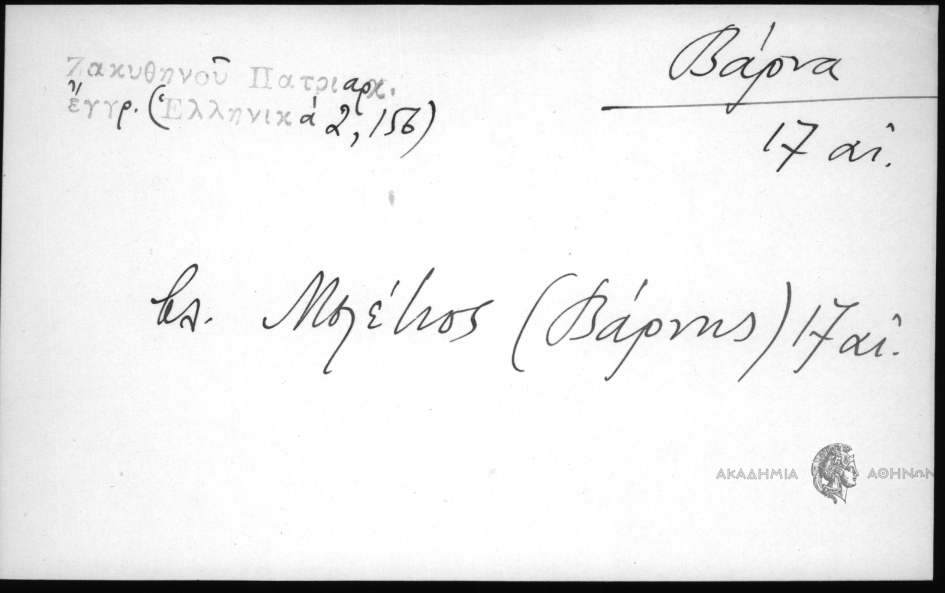 Ζακυθηνοῦ Πατριαρχ.
ἔγγρ. (Ἑλληνικά 2, 156)
Βάρνα
17 αἰ.
βλ. Μελέτιος (Βάρνης) 17 αἰ.
ΑΚΑΔΗΜΙΑ ΑΘΗΝΩΝ